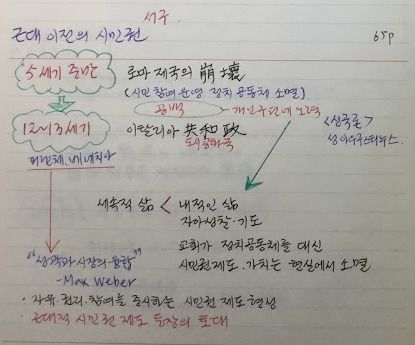 서구.
근대 이전의 시민권
65p
5세기 중반
로마 제국의 崩壞
(시민 참여·운영 정치 공동체 소멸)
공백
개인구원에 노력
<신국론>
성 아우구스티누스.
12~13세기
이탈리아 共和政
도시공화국
피렌체, 베네치아
세속적 삶 < 내적인 삶
자아성찰·기도
교회가 정치공동체를 대신
시민권제도·가치는 현실에서 소멸
"성곽과 시장의 융합"
-Max Weber
· 자유·권리·참여를 중시하는 시민권 제도 형성
· 근대적 시민권 제도 등장의 토대